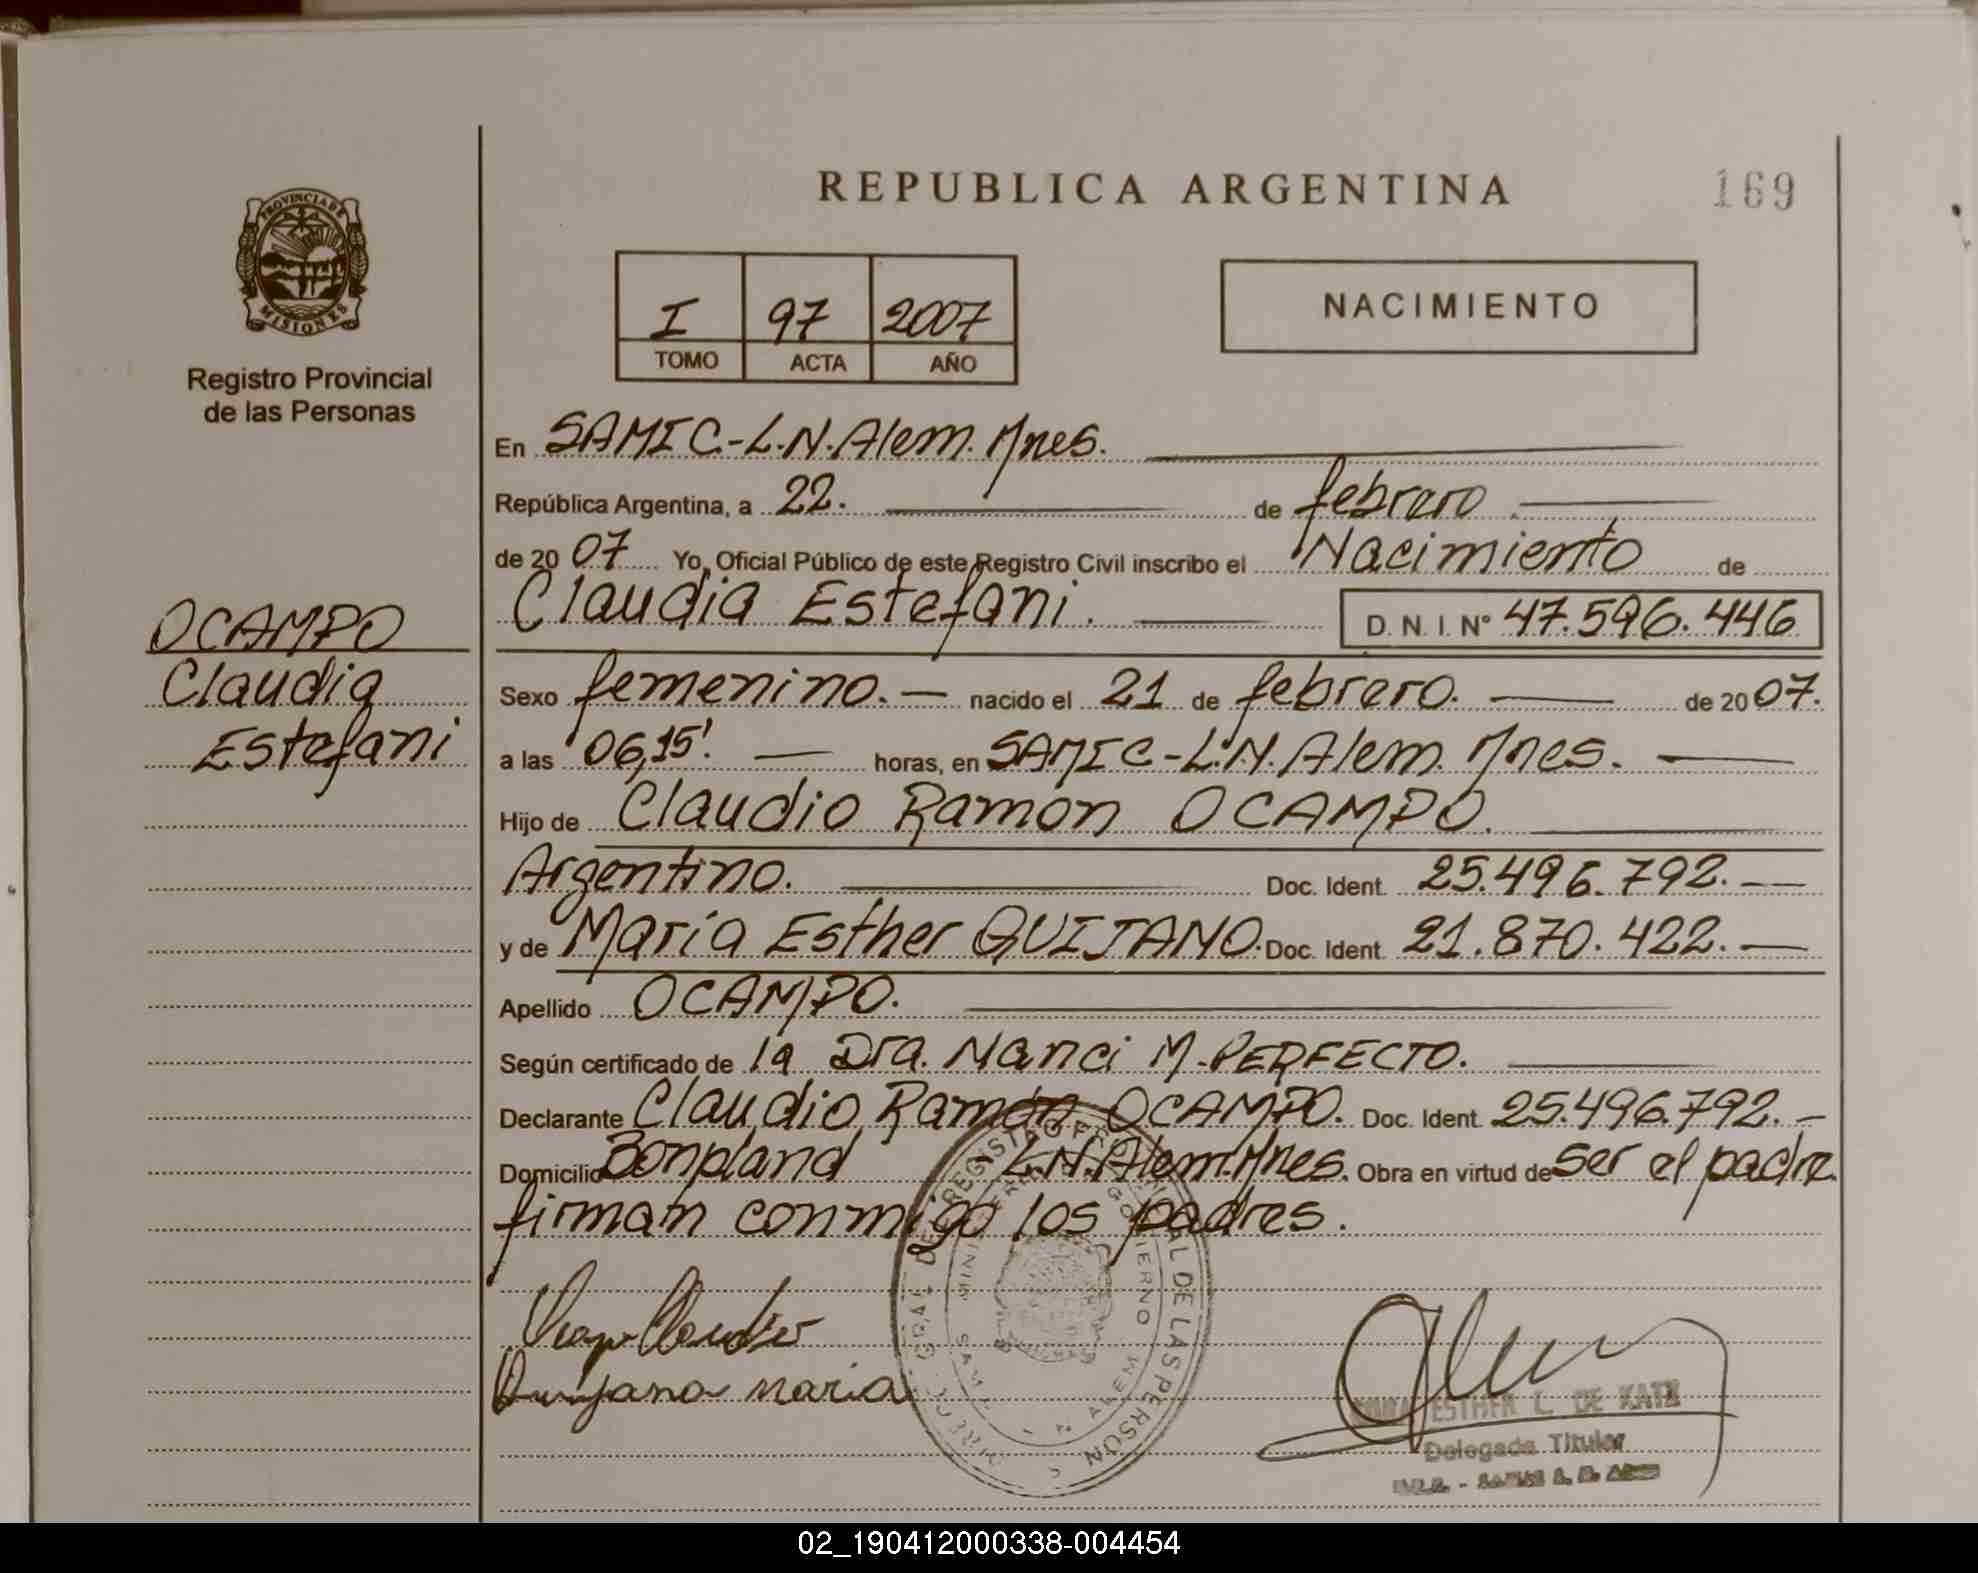 REPUBLICA ARGENTINA
169
PROVINCIA DE
MISIONES
Registro Provincial
de las Personas
I 97 2007
TOMO ACTA AÑO
NACIMIENTO
En SAMIC-L.N.Alem. Mnes.
República Argentina, a 22. de febrero
de 2007 Yo, Oficial Público de este Registro Civil inscribo el Nacimiento de
Claudia Estefani. D. N. I. Nº 47.596.446
OCAMPO
Claudia
Estefani
Sexo femenino. nacido el 21 de febrero. de 2007.
a las 06,15'. horas, en SAMIC-L.N. Alem. Mnes.
Hijo de Claudio Ramón OCAMPO.
Argentino. Doc. Ident. 25.496.792.
y de María Esther QUIJANO. Doc. Ident. 21.870.422.
Apellido OCAMPO.
Según certificado de la Dra. Nanci M. PERFECTO.
Declarante Claudio Ramón OCAMPO. Doc. Ident. 25.496.792.
Domicilio Bonpland L.N.Alem.Mnes. Obra en virtud de ser el padre
firman conmigo los padres.
DIREC. GRAL. DEL REGISTRO PROVINCIAL DE LAS PERSONAS
MINISTERIO GOBIERNO
Quijano maria
ESTHER L. DE KATZ
Delegada Titular
02_190412000338-004454